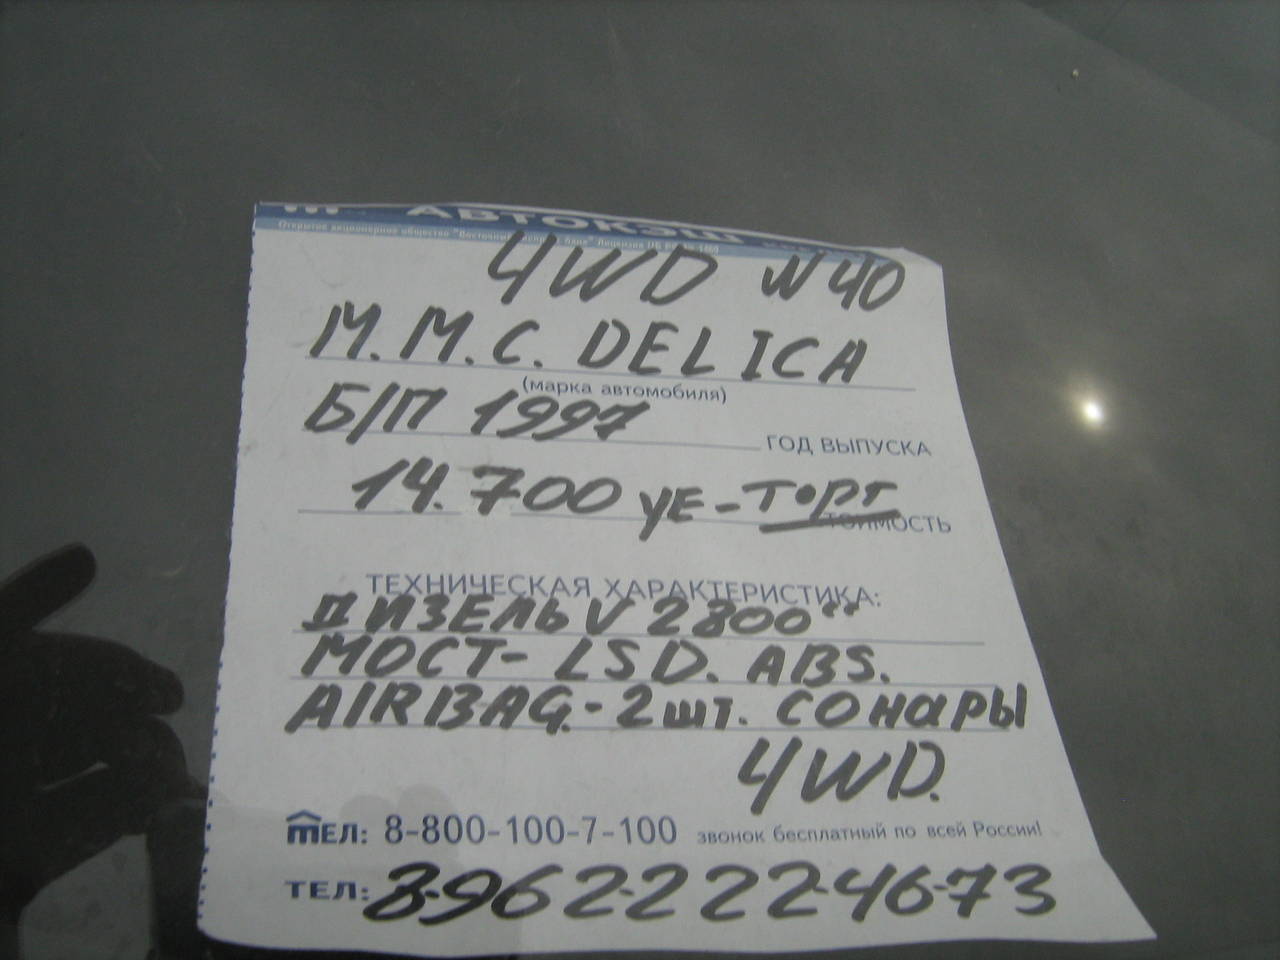 АВТОКЭШ
Открытое акционерное общество "Восточный
4WD N 40
M.M.C. DELICA
(марка автомобиля)
Б/П 1997 ГОД ВЫПУСКА
14.700 УЕ - ТОРГ
ТОИМОСТЬ
ТЕХНИЧЕСКАЯ ХАРАКТЕРИСТИКА:
ДИЗЕЛЬ V 2800"
МОСТ - LSD. ABS.
AIRBAG. - 2 шт. СОНАРЫ
4WD.
ТЕЛ: 8-800-100-7-100 звонок бесплатный по всей России!
ТЕЛ: 8-962-222-46-73